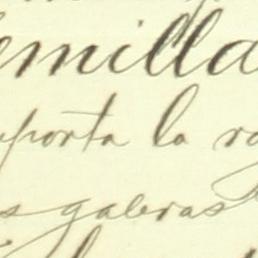 emilla
porta la
s galeras